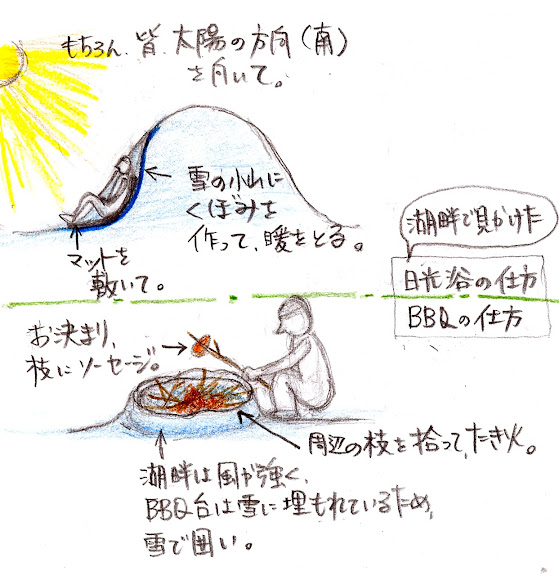 もちろん、皆、太陽の方向(南)
を向いて。
雪の小山に
くぼみを
作って、暖をとる。
マットを
敷いて。
湖畔で見かけた
日光浴の仕方
BBQの仕方
お決まり、
枝にソーセージ。
周辺の枝を拾って、たき火。
湖畔は風が強く、
BBQ台は雪に埋もれているため、
雪で囲い。